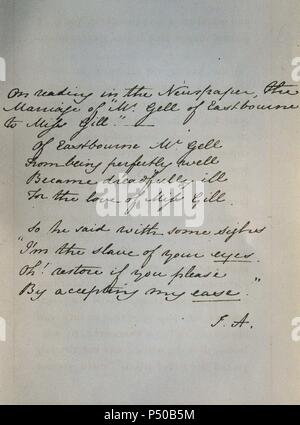 On reading in the Newspaper, the
Marriage of "Mr. Gell of Eastbourne
to Miss Gill." —
Of Eastbourne Mr Gell
From being perfectly well
Became dreadfully ill
For the love of Miss Gill.
So he said with some sighs
"I'm the slave of your eyes.
Oh! restore if you please
By accepting my ease."
J. A.
alamy
alamy stock photo
P50B5M
www.alamy.com